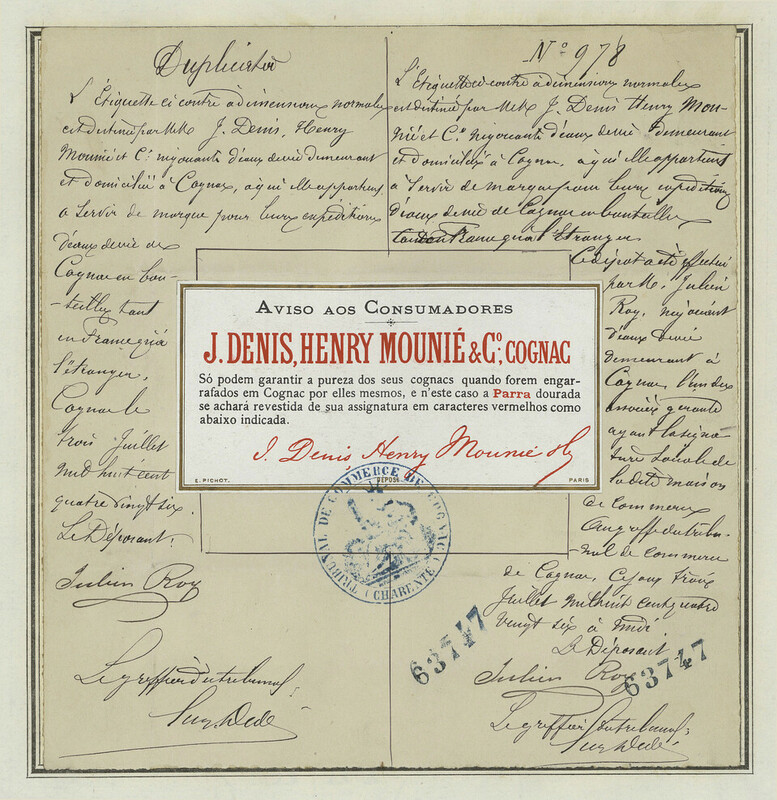 Duplicata
L'Etiquette ci contre à dimensions normales
est destinée par MM. J. Denis, Henry
Mounié et Cie négociants d'eaux de vie demeurant
et domiciliés à Cognac, à qui elle appartient
à servir de marque pour leurs expéditions
d'eaux de vie de
Cognac en bou-
teilles tant
en France qu'à
l'étranger.
Cognac le
trois Juillet
mil huit cent
quatre vingt six.
Le Déposant,
Julien Roy
Le greffier du tribunal,
No 978
L'Etiquette ci-contre à dimensions normales
est destinée par MM. J. Denis Henry Mou-
nié et Co. négociants d'eaux de vie demeurant
et domiciliés à Cognac, à qui elle appartient
à servir de marque pour leurs expéditions
d'eaux de vie de Cognac en bouteilles
tant en France qu'à l'Etranger
Ce dépôt a été effectué
par M. Julien
Roy, négociant
d'eaux de vie
demeurant à
Cognac, l'un des
associés gérants
ayant la signa-
ture sociale de
la dite maison
de commerce
Au greffe du tribu-
nal de commerce
de Cognac, Ce jour trois
Juillet mil huit cent quatre
vingt six à midi
Le Déposant
Julien Roy
Le greffier du tribunal,
AVISO AOS CONSUMADORES
J. DENIS, HENRY MOUNIÉ & Co., COGNAC
Só podem garantir a pureza dos seus cognacs quando forem engar-
rafados em Cognac por elles mesmos, e n'este caso a Parra dourada
se achará revestida de sua assignatura em caracteres vermelhos como
abaixo indicada.
J. Denis Henry Mounié & Co
E. PICHOT.
DÉPOSÉ
PARIS
TRIBUNAL DE COMMERCE DE COGNAC
(CHARENTE)
63747
63747